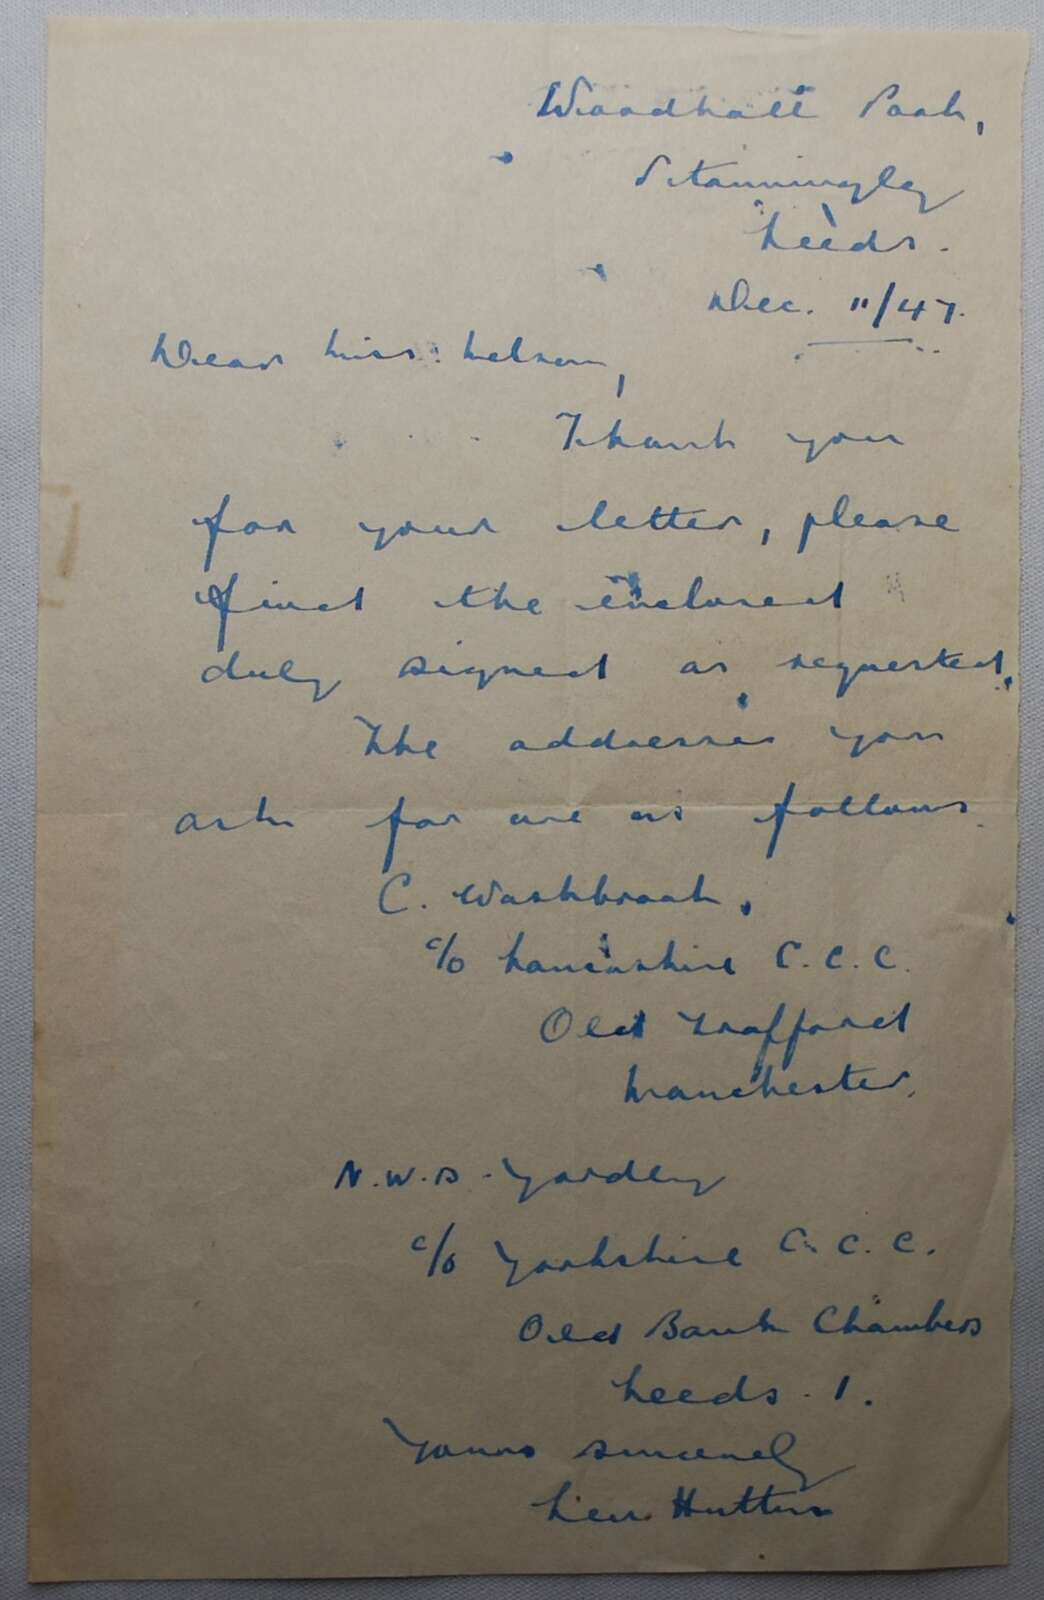 Woodhall Park,
Stanningley
Leeds.
Dec. 11/47.
Dear Miss Nelson,
Thank you
for your letter, please
find the enclosed
duly signed as requested.
The addresses you
ask for are as follows.
C. Washbrook.
c/o Lancashire C.C.C.
Old Trafford
Manchester.
N.W.D. Yardley
c/o Yorkshire C.C.C.
Old Bank Chambers
Leeds. 1.
Yours sincerely
Len Hutton